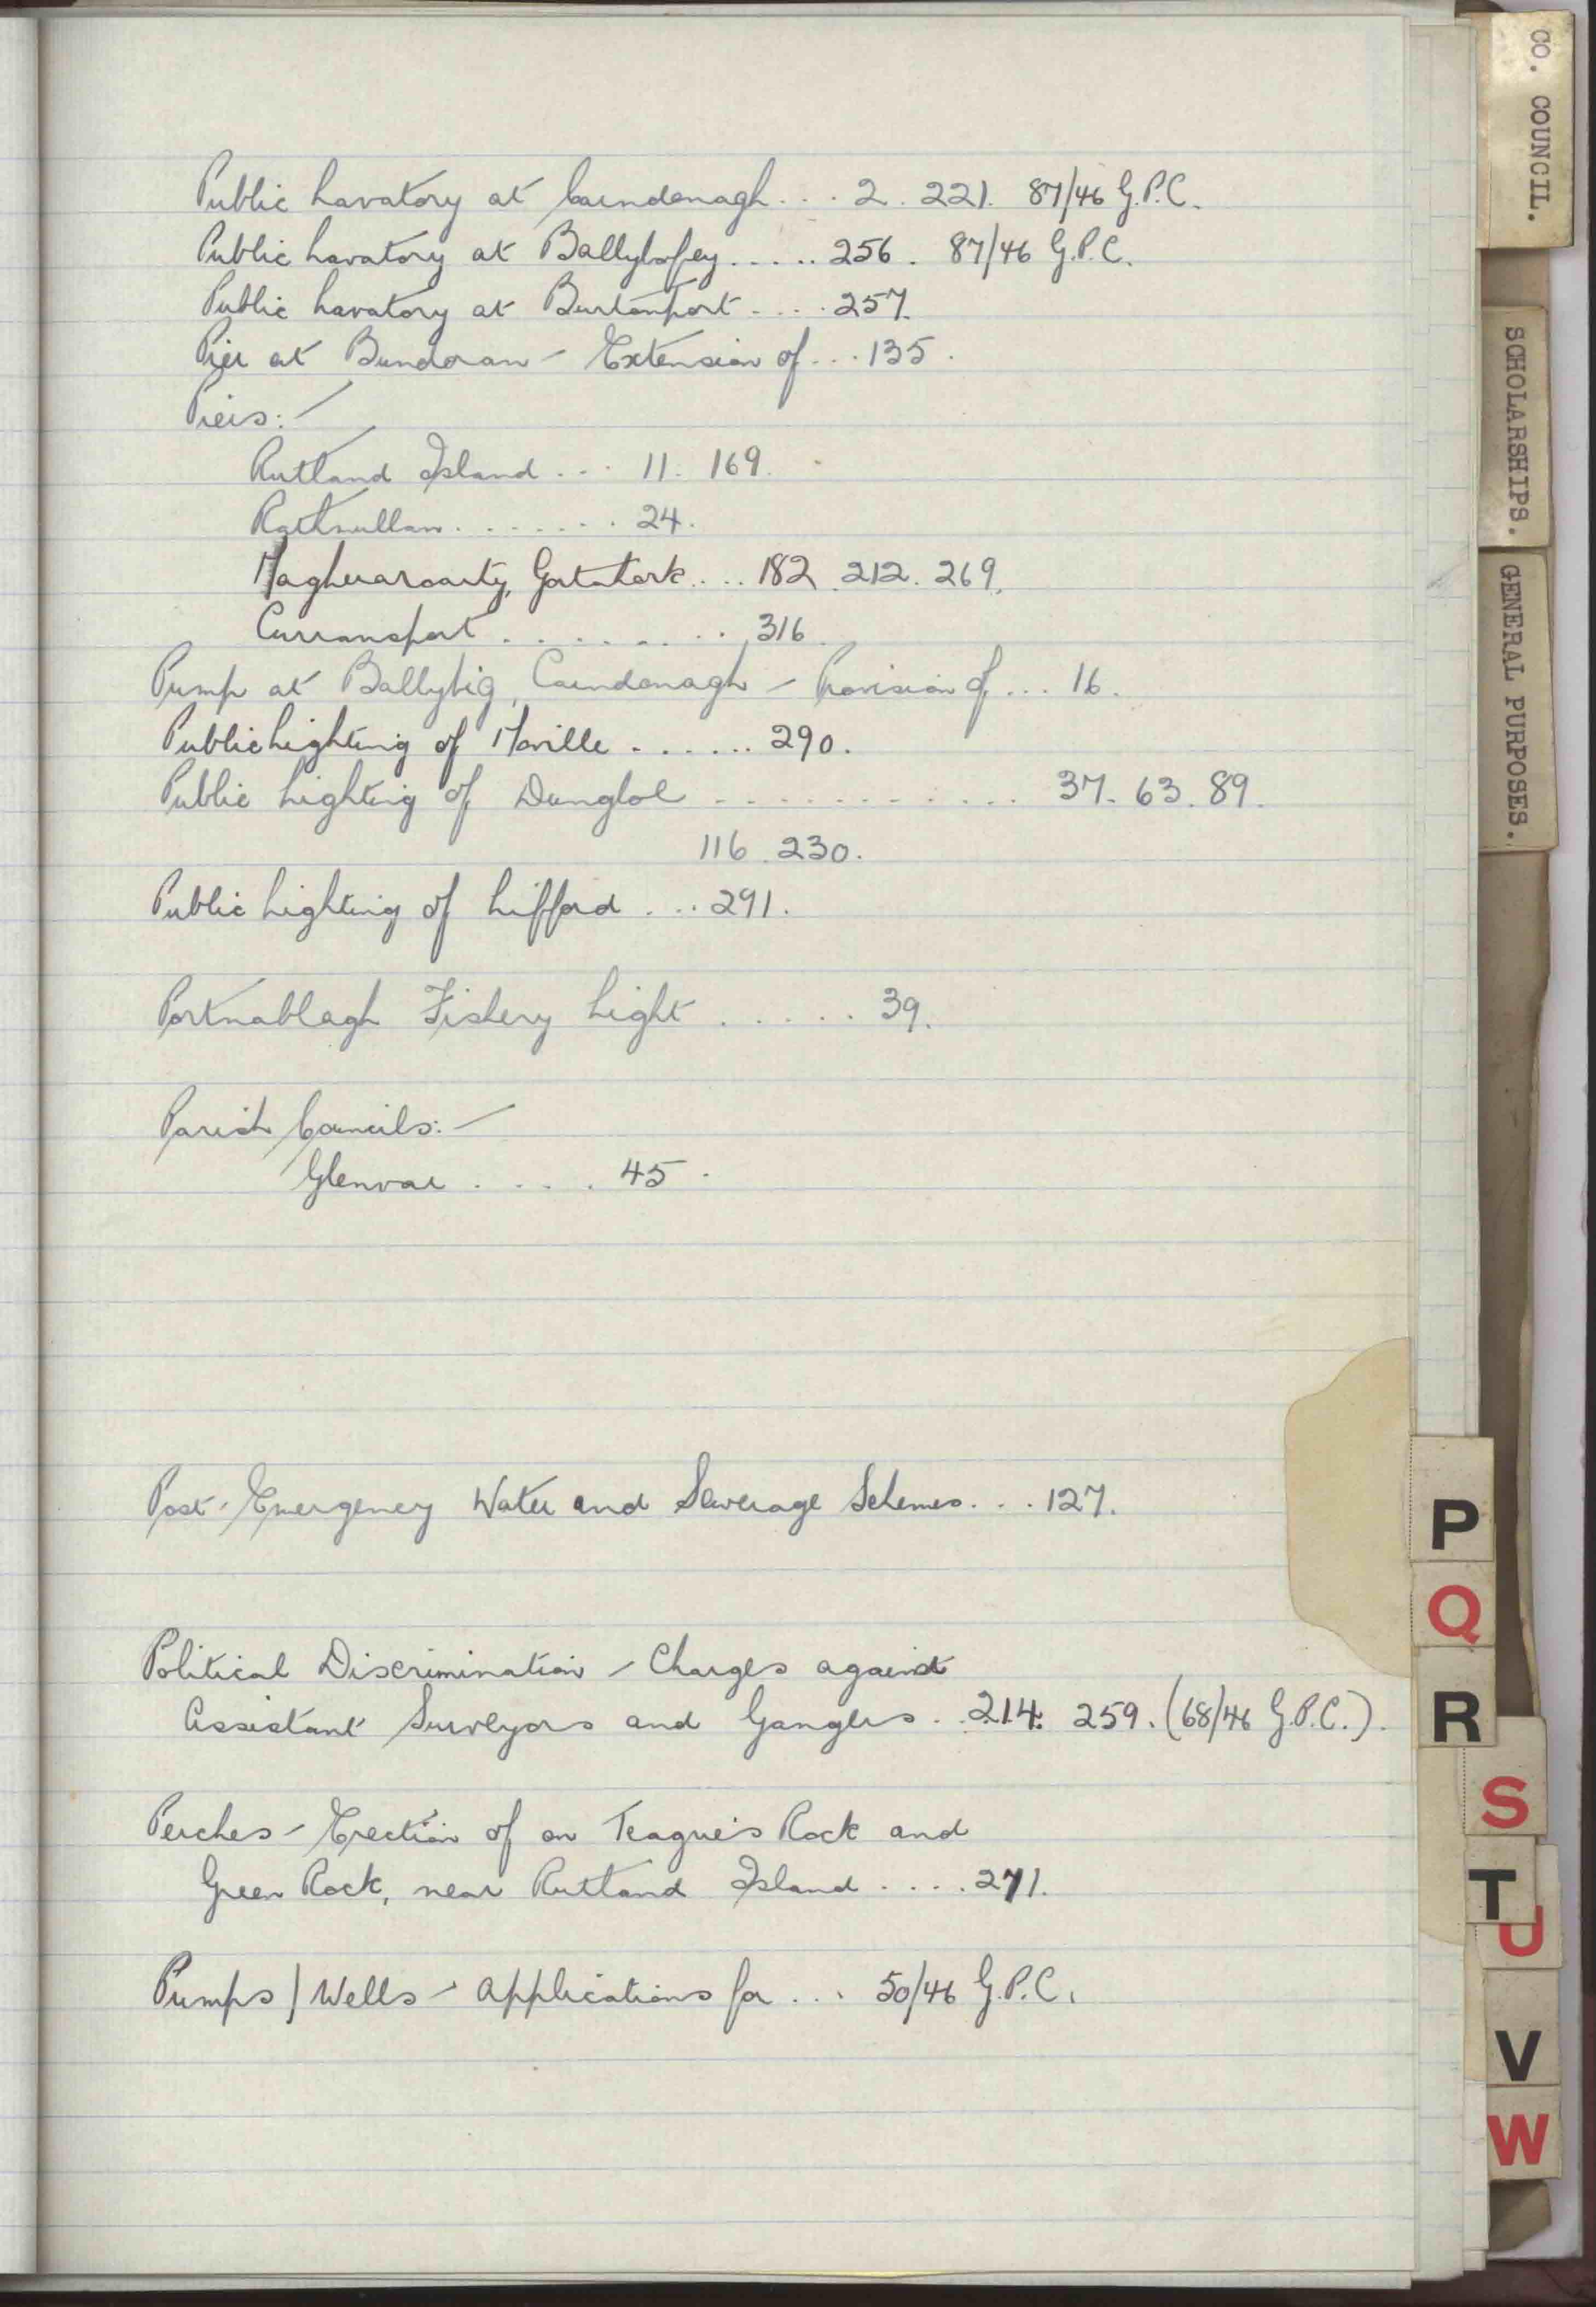 Public Lavatory at Carndonagh... 2. 221. 87/46 G.P.C.
Public Lavatory at Ballybofey..... 256. 87/46 G.P.C.
Public Lavatory at Burtonport.... 257.
Pier at Bundoran - Extension of... 135.
Piers:-
Rutland Island... 11. 169.
Rathmullan....... 24.
Magheraroarty, Gortahork.... 182. 212. 269.
Curransport......... 316.
Pump at Ballyhig, Carndonagh - Provision of... 16.
Public Lighting of Moville....... 290.
Public Lighting of Dungloe............ 37. 63. 89.
116. 230.
Public Lighting of Lifford.... 291.
Portnablagh Fishery Light..... 39.
Parish Councils:-
Glenvar.... 45.
Post-Emergency Water and Sewerage Schemes... 127.
Political Discrimination - Charges against
Assistant Surveyors and Gangers.. 214. 259. (68/46 G.P.C.).
Perches - Erection of on Teague's Rock and
Green Rock, near Rutland Island.... 271.
Pumps / Wells - Applications for... 50/46 G.P.C.
CO. COUNCIL.
SCHOLARSHIPS.
GENERAL PURPOSES.
P
Q
R
S
T
U
V
W